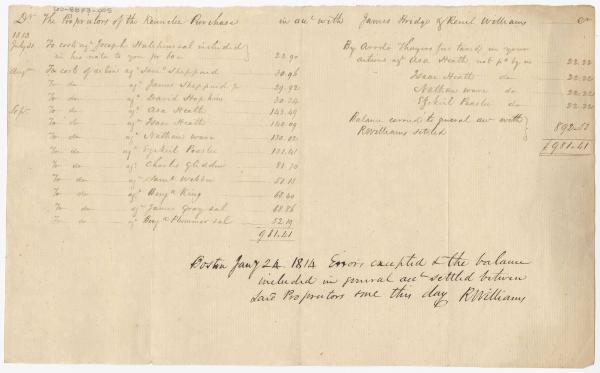 Dr The Proprietors of the Kennebec Purchase in acct with James Bridge & Reuel Williams Cr
1813
July 31 To costs agt Joseph Hutchins sal included
in his note to you for 22.90
Augt To costs of action agt Saml Sheppard 30.96
To do agt James Sheppard 29.92
To do agt David Hopkins 30.74
Sept To do agt Asa Heath 143.49
To do agt Isaac Heath 140.09
To do agt Nathan
To do agt Ezekiel
To do agt Charles Glidden 81.70
To do agt Saml Webber
To do agt Benja King 68.40
To do agt James Gray sal 68.86
To do agt Benja Plummer sal 52.19
$981.41
By for taxes in your
actions agt Asa Heath not pd by 22.22
Isaac Heath do 22.22
Nathan do 22.22
Ezekiel do 22.22
Balance carried to general acct with
RWilliams settled 892.53
$981.41
Boston Jany 24. 1814 Errors excepted & the balance
included in general acct settled between
said Proprietors & me this day RWilliams